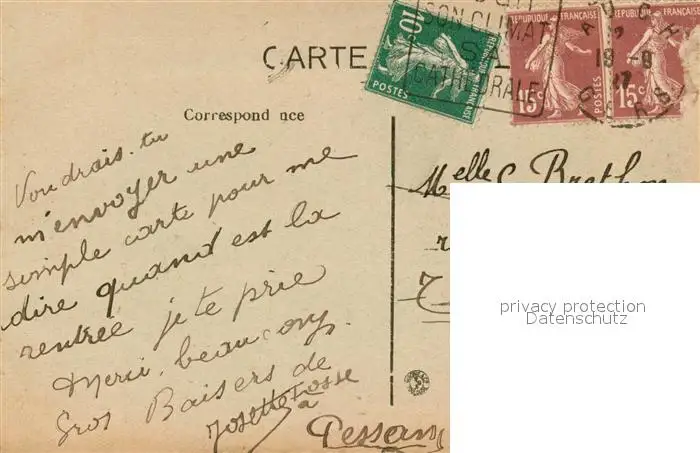 SON CLIMAT
SA
CATHEDRALE
AUCH
19 -9
REPUBLIQUE FRANÇAISE
10c
POSTES
REPUBLIQUE FRANÇAISE
15c
POSTES
REPUBLIQUE FRANÇAISE
15c
CARTE
Correspond nce
Voudrais-tu
m'envoyer une
simple carte pour me
dire quand est la
rentrée je te prie
Merci beaucoup.
Gros Baisers de
Josette Fosse
à
Pessan
Melle C. Brethon
privacy protection
Datenschutz